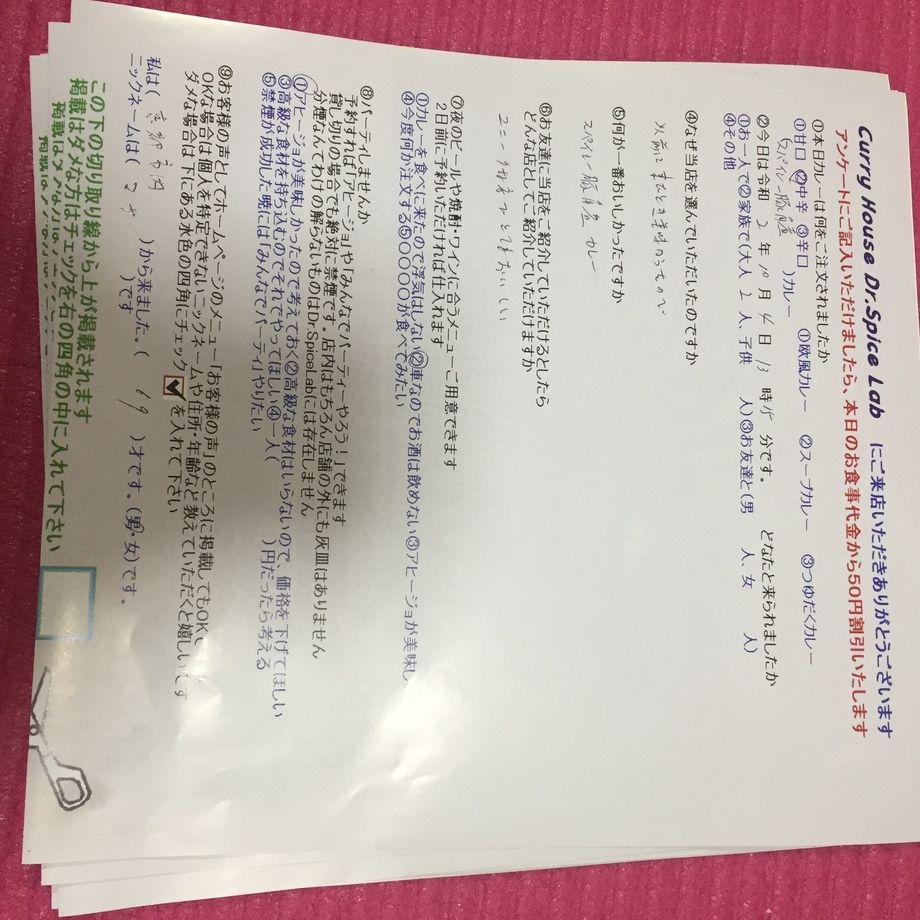 Curry House Dr.Spice Lab にご来店いただきありがとうございます
アンケートにご記入いただけましたら、本日のお食事代金から50円割引いたします
①本日カレーは何をご注文されましたか ①欧風カレー ②スープカレー ③つゆだくカレー
(スパイシー豚角煮 )カレー
①甘口 ②中辛 ③辛口
②今日は令和 2 年 10 月 4 日 13 時 15 分です。 どなたと来られましたか
①お一人で②家族で(大人 2 人、子供 人)③お友達と(男 人、女 人)
④その他
④なぜ当店を選んでいただいたのですか
以前に来たとき美味かったので
⑤何が一番おいしかったですか
スパイシー豚角煮 カレー
⑥お友達に当店をご紹介していただけるとしたら
どんな店としてご紹介していただけますか
ユニークなカレーでとてもおいしい
⑦夜のビールや焼酎・ワインに合うメニューご用意できます
2日前に予約いただければ仕入れます
①カレーを食べに来たので浮気はしない②車なのでお酒は飲めない③アヒージョが美味し
④今度何か注文する⑤〇〇〇〇が食べてみたい
⑧パーティしませんか
予約すれば「アヒージョ」や「みんなでパーティーやろう！」できます
貸し切りの場合でも絶対に禁煙です。店内はもちろん店舗の外にも灰皿はありません
分煙なんてわけの解らないものはDr.SpiceLabには存在しません
①アヒージョが美味しかったので考えておく②高級な食材はいらないので、価格を下げてほしい
③高級な食材を持ち込むのでそれでやってほしい④一人( )円だったら考える
⑤禁煙が成功した暁には「みんなでパーティ」やりたい
⑨お客様の声としてホームページのメニュー「お客様の声」のところに掲載してもOKで
OKな場合は個人を特定できないニックネームや住所・年齢など教えていただくと嬉しいです
ダメな場合は下にある水色の四角にチェック を入れて下さい
私は( 京都市内 )から来ました。( 69 )才です。(男・女)です。
ニックネームは( )です
この下の切り取り線から上が掲載されます
掲載はダメな方はチェックを右の四角の中に入れて下さい